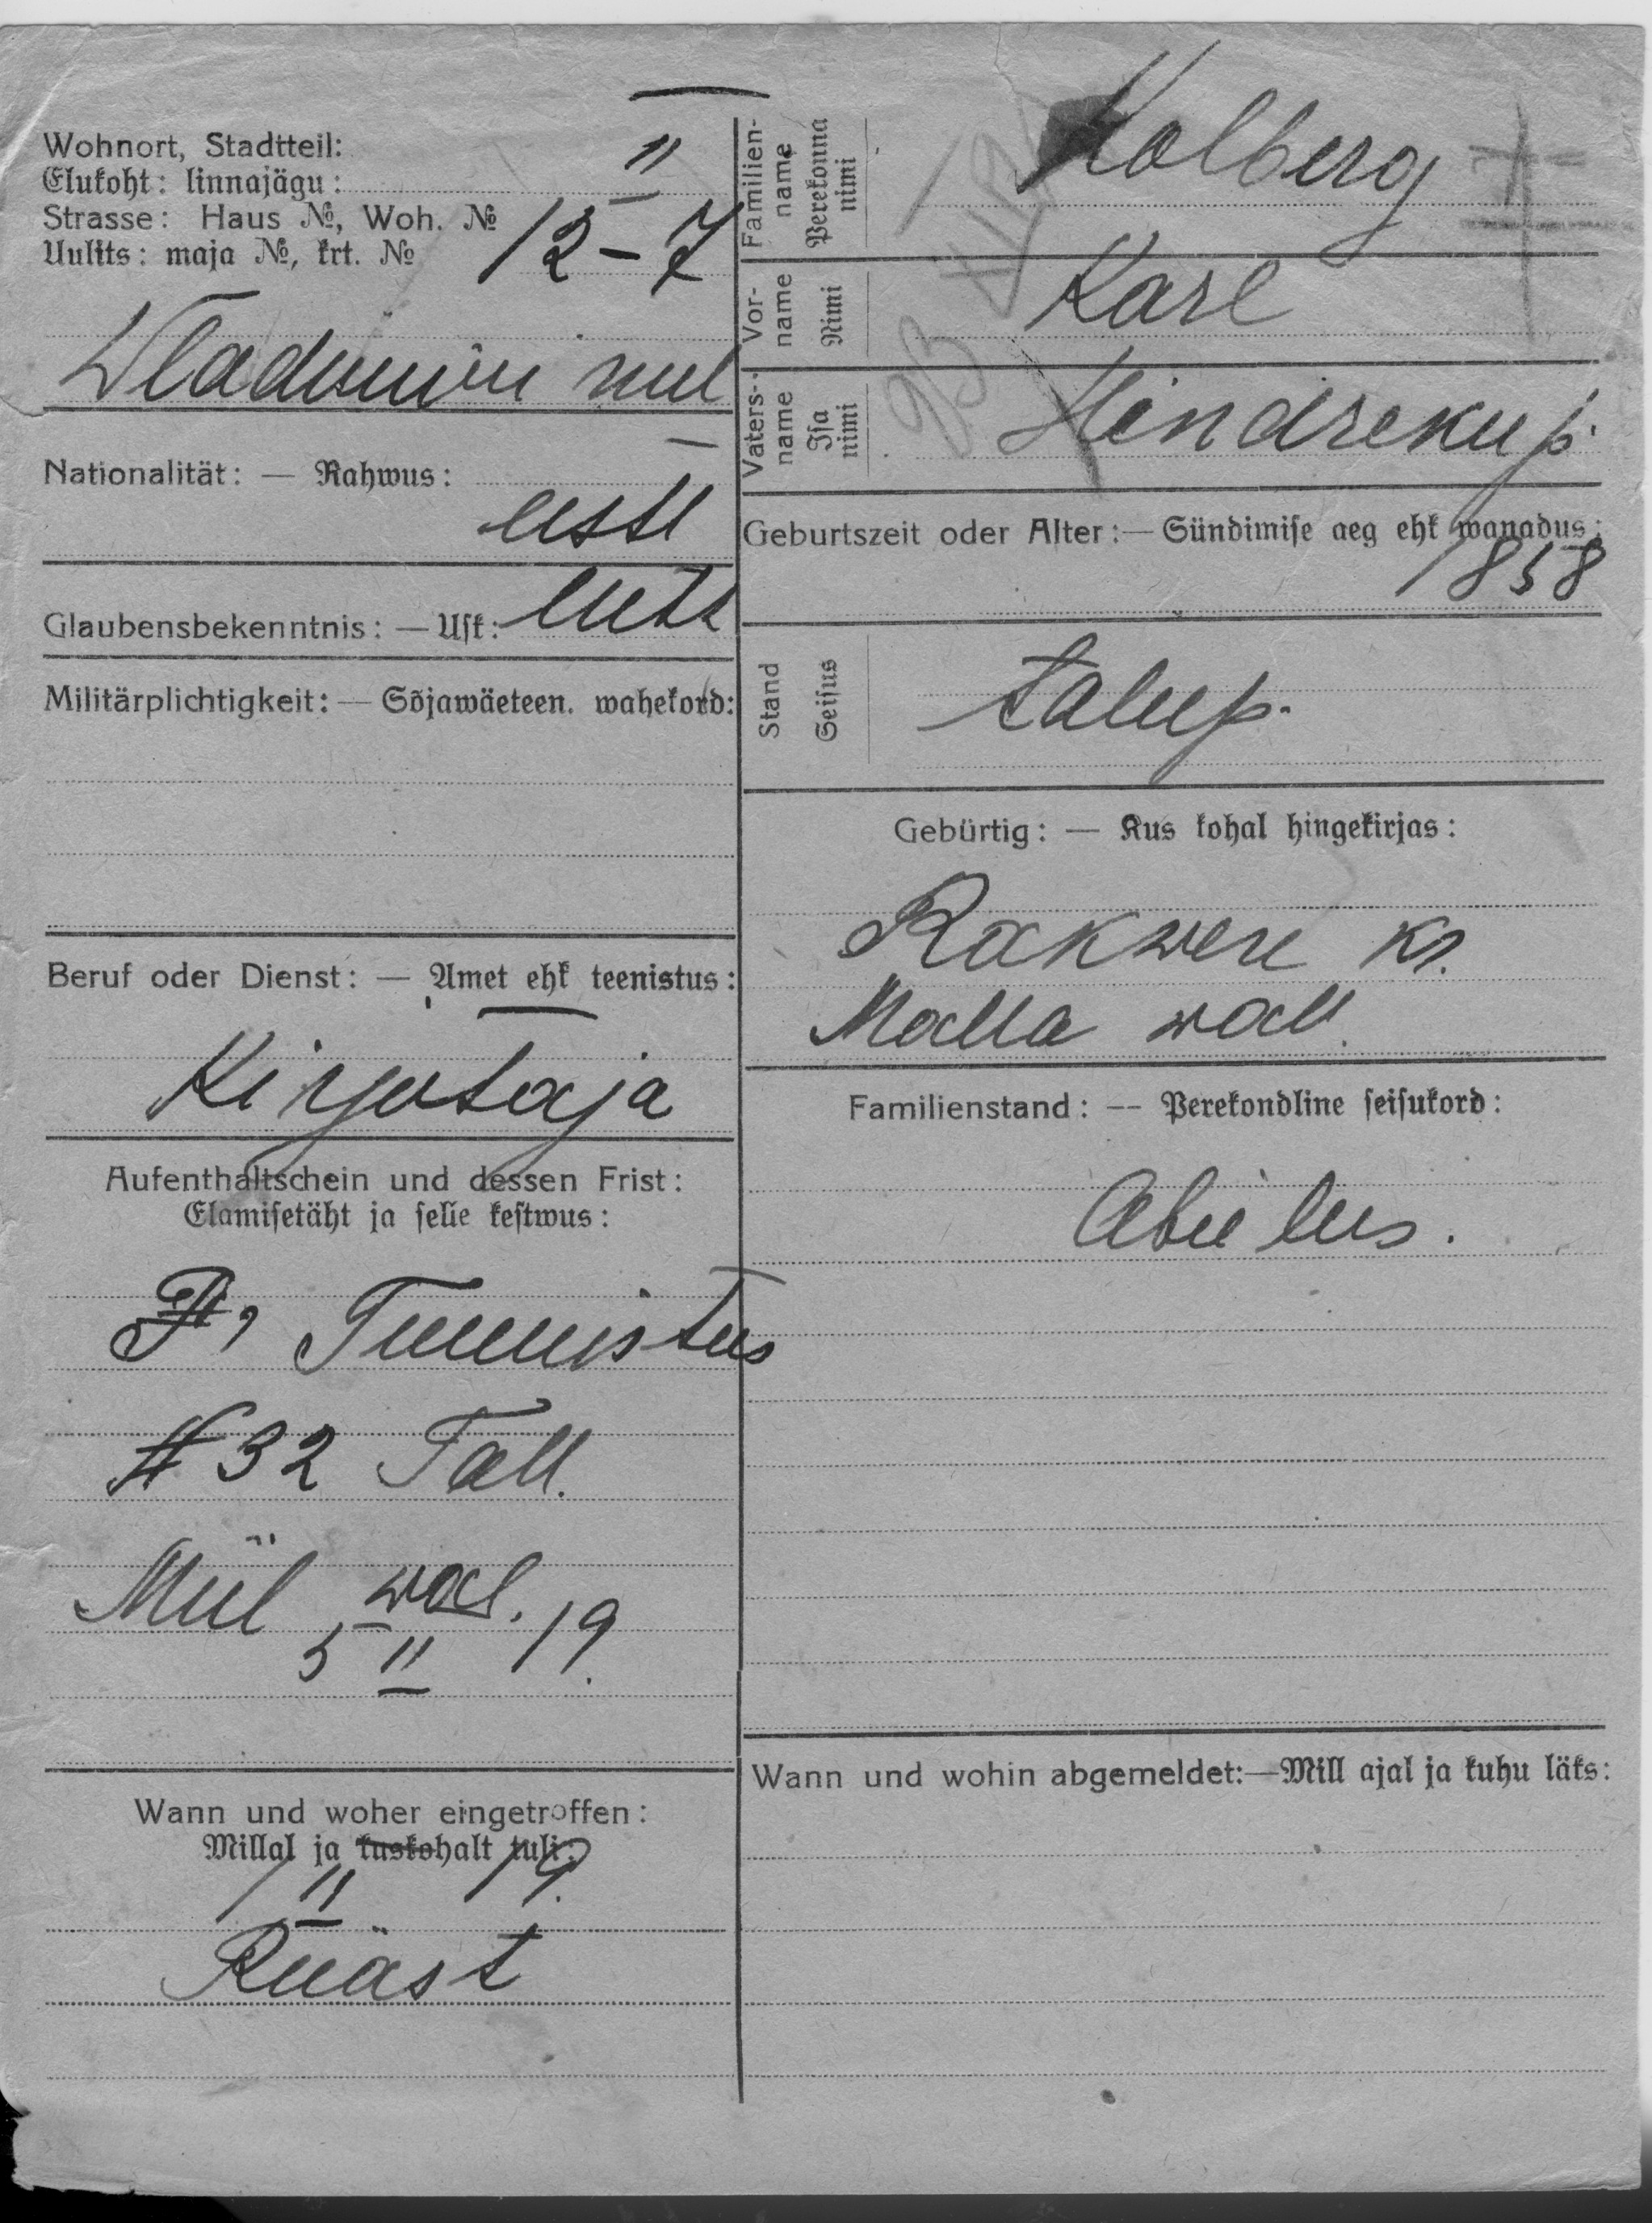 Wohnort, Stadtteil:
Elukoht: linnajägu: II
Strasse: Haus №, Woh. №
Uulits: maja №, krt. № 12-7
Wladimiri uul
Nationalität: — Rahwus:
eestl
Glaubensbekenntnis: — Usk: lutt
Militärplichtigkeit: — Sõjawäeteen. wahekord:
Beruf oder Dienst: — Amet ehk teenistus:
Kirjotaja
Aufenthaltschein und dessen Frist:
Elamisetäht ja selle kestwus:
Tunnistus
№ 32 Tall.
Mül wal.
5 II 19.
Wann und woher eingetroffen:
Millal ja kuskohalt tuli:
1 II 19.
Familien-name Perekonna nimi Kolberg
Vor-name Nimi Karl
Vaters-name Isa nimi Hindreku p.
Geburtszeit oder Alter: — Sündimise aeg ehk wanadus:
1858
Stand Seisus talup.
Gebürtig: — Kus kohal hingekirjas:
Rakwere kr.
Malla wall.
Familienstand: — Perekondline seisukord:
Abielus.
Wann und wohin abgemeldet: — Mill ajal ja kuhu läks: